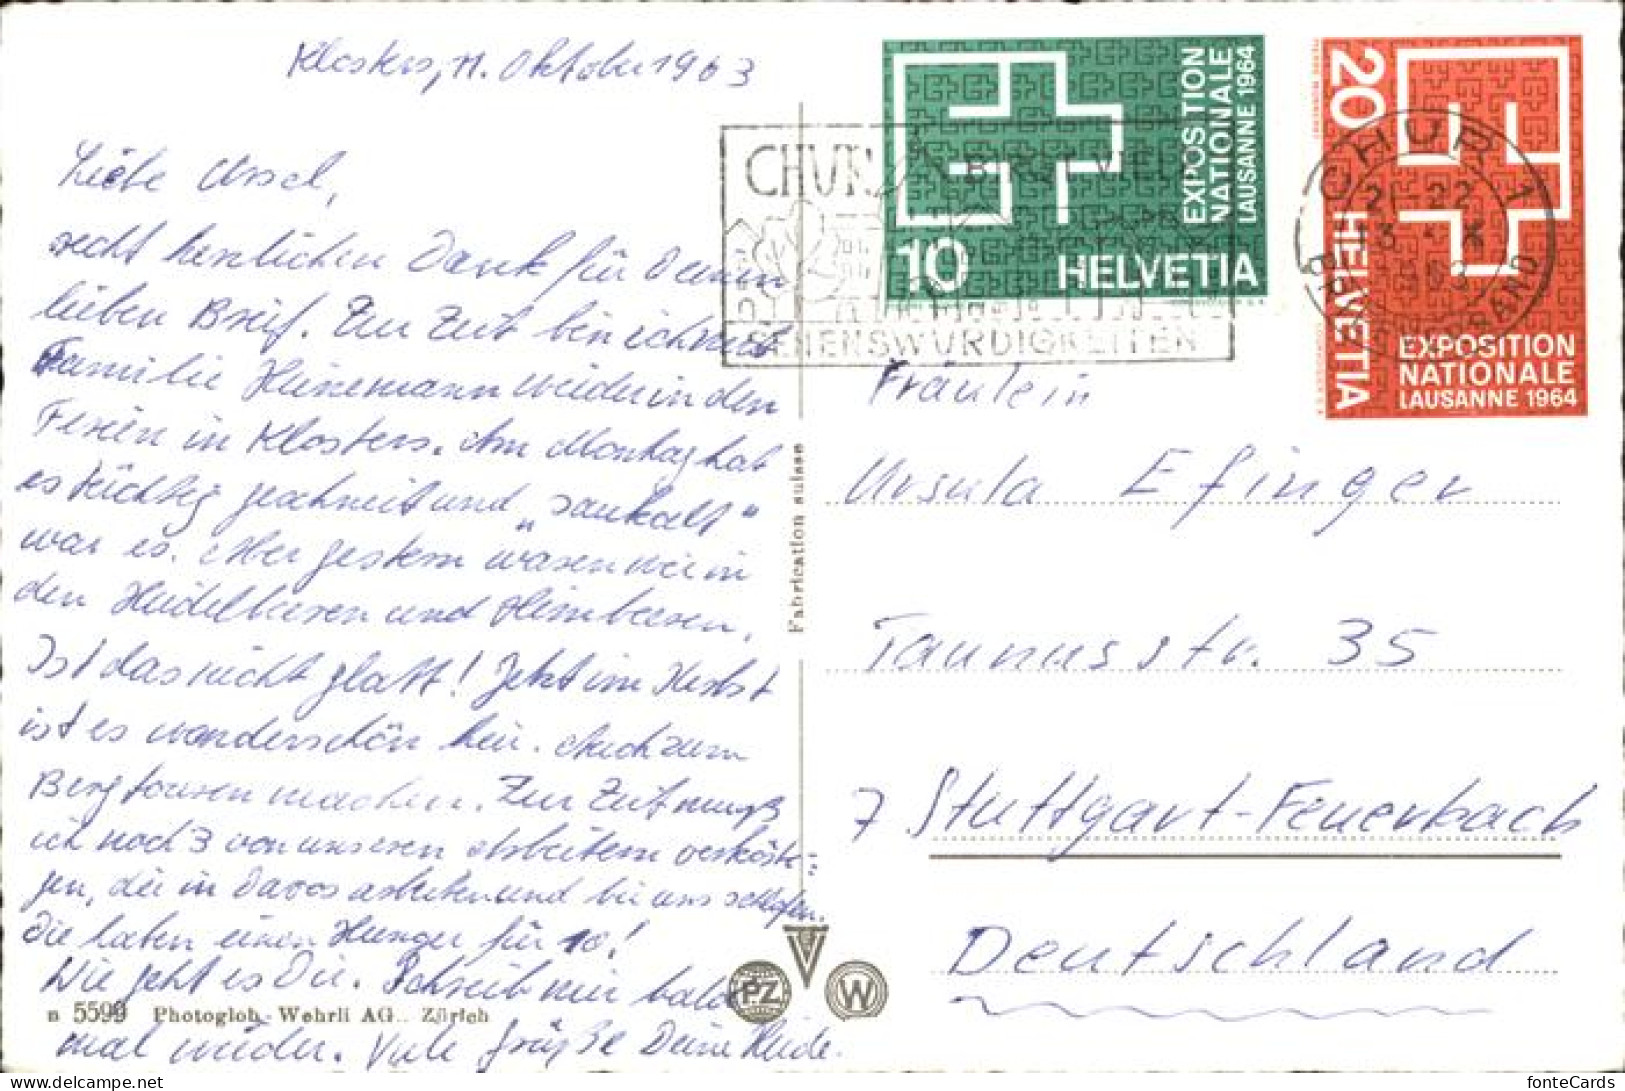 Klosters, 11. Oktober 1963
Liebe Ursel,
recht herzlichen Dank für Deinen
lieben Brief. Zur Zeit bin ich mit
Familie Heinemann wieder in den
Ferien in Klosters. Am Montag hat
es tüchtig geschneit und „saukalt"
war es. Aber gestern waren wir in
den Heidelbeeren und Himbeeren.
Ist das nicht glatt! Jetzt im Herbst
ist es wunderschön hier. Auch zum
Bergtouren machen. Zur Zeit muß
ich noch 3 von unseren Arbeitern verkösti-
gen, die in Davos arbeiten und bei uns schlafen.
Die haben einen Hunger für 10!
Wie geht es Dir. Schreib mir bald
mal wieder. Viele Grüße Deine Heide.
n 5599 Photoglob-Wehrli AG., Zürich
Fabrication suisse
PZ
W
CHUR BIRGT VIELE
SEHENSWÜRDIGKEITEN
EXPOSITION
NATIONALE
LAUSANNE 1964
10 HELVETIA
20 HELVETIA
EXPOSITION
NATIONALE
LAUSANNE 1964
CHUR 1
21-22
13
1963
BRIEFVERSAND
Fräulein
Ursula Efinger
Taunusstr. 35
7 Stuttgart-Feuerbach
Deutschland
https://www.delcampe.net
fonteCards